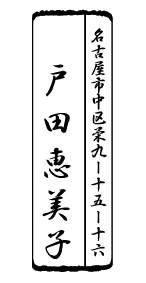 名古屋市中区栄九ー十五ー十六
戸田恵美子